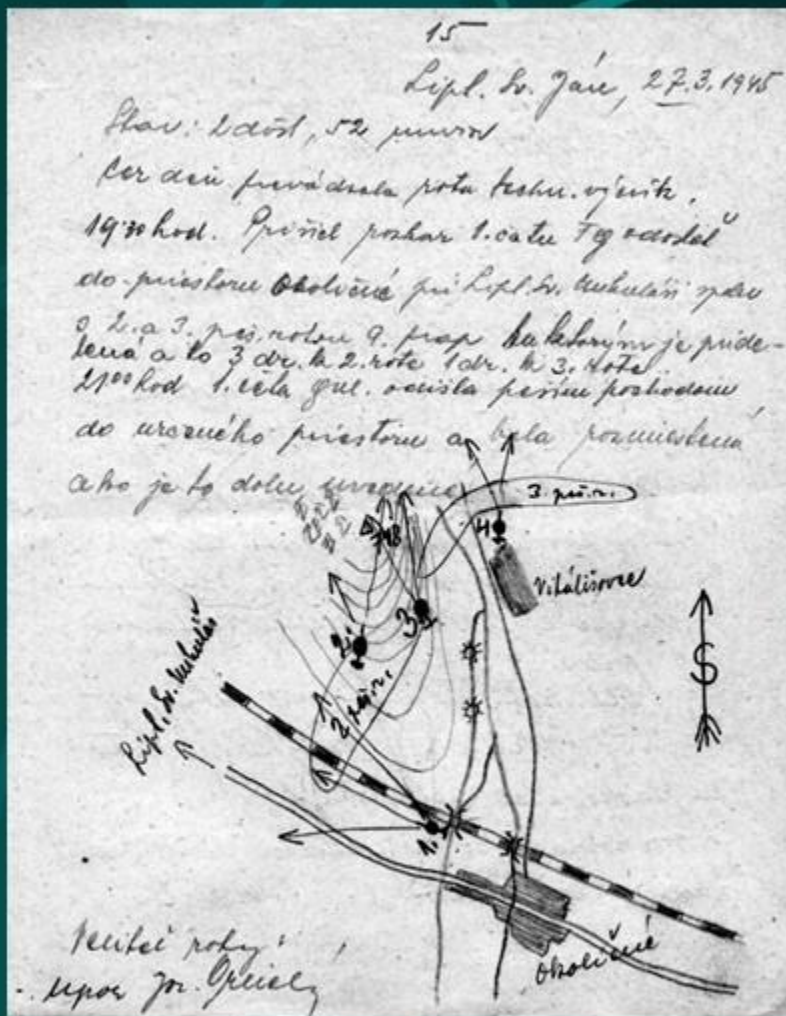 15
Lipt. Sv. Ján, 27.3.1945
Stav: 2 dôst, 52 mužov
Cez deň prevádzala rota techn. výcvik.
19:30 hod. Prišiel rozkaz 1. čatu odoslať
do priestoru Okoličné pri Lipt. Sv. Mikuláši
s 2. a 3. peš. rotou 9. prap je pride-
lená a to 3 dr. k 2. rote 1 dr. k 3. rote.
21⁰⁰ hod 1. čata odišla pešim pochodom
do určeného priestoru a bola rozmiestená
ako je to dolu uvedené
3. peš. r.
748
4
Vitálišovce
3
2
2 peš. r.
Lipt. Sv. Mikuláš
S
1.
Okoličné
Veliteľ roty: